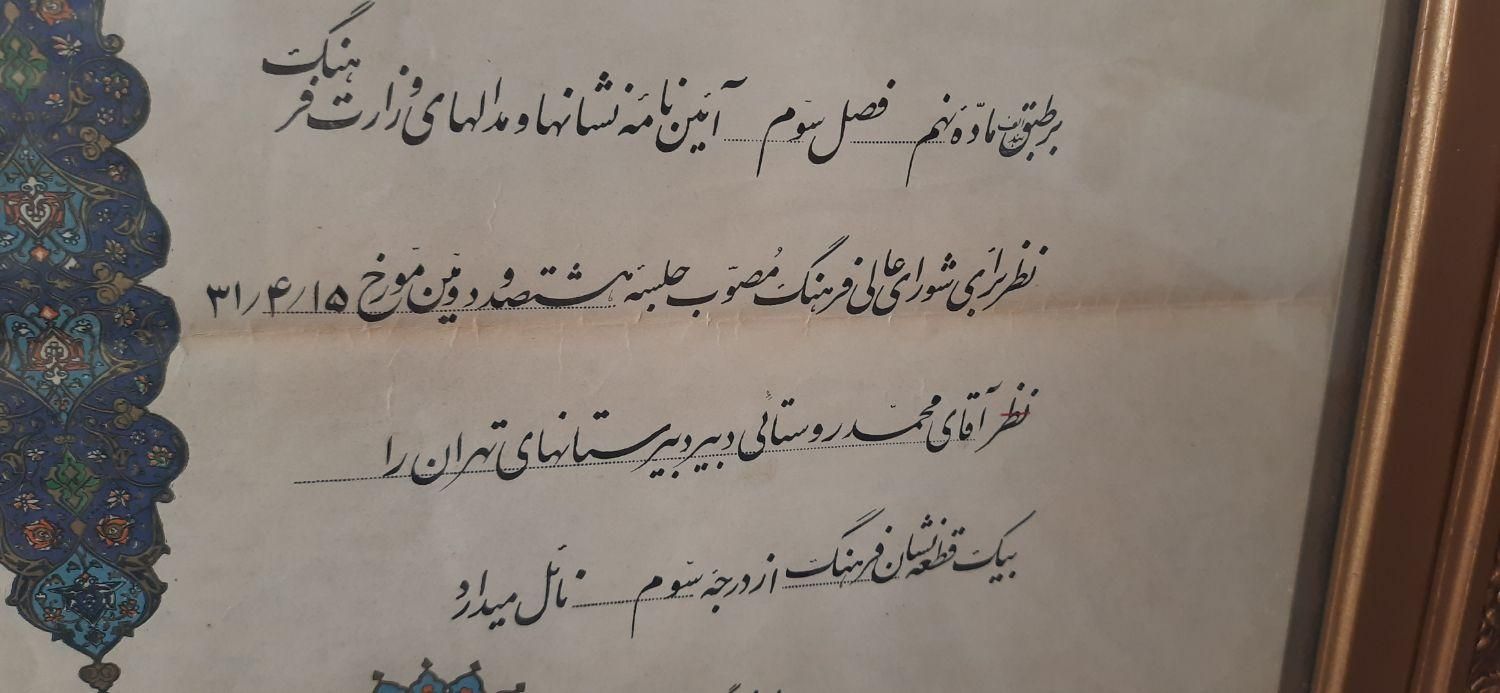 بر طبق مادّه نهم فصل سوّم آئین نامهٔ نشانها و مدالهای وزارت فرهنگ
نظر برأی شورای عالی فرهنگ مُصوّب جلسهٔ هشتصد و دومّین مورّخ ۳۱/۴/۱۵
نظر آقای محمّد روستائی دبیر دبیرستانهای تهران را
بیک قطعه نشان فرهنگ از درجهٔ سوّم نائل میدارد